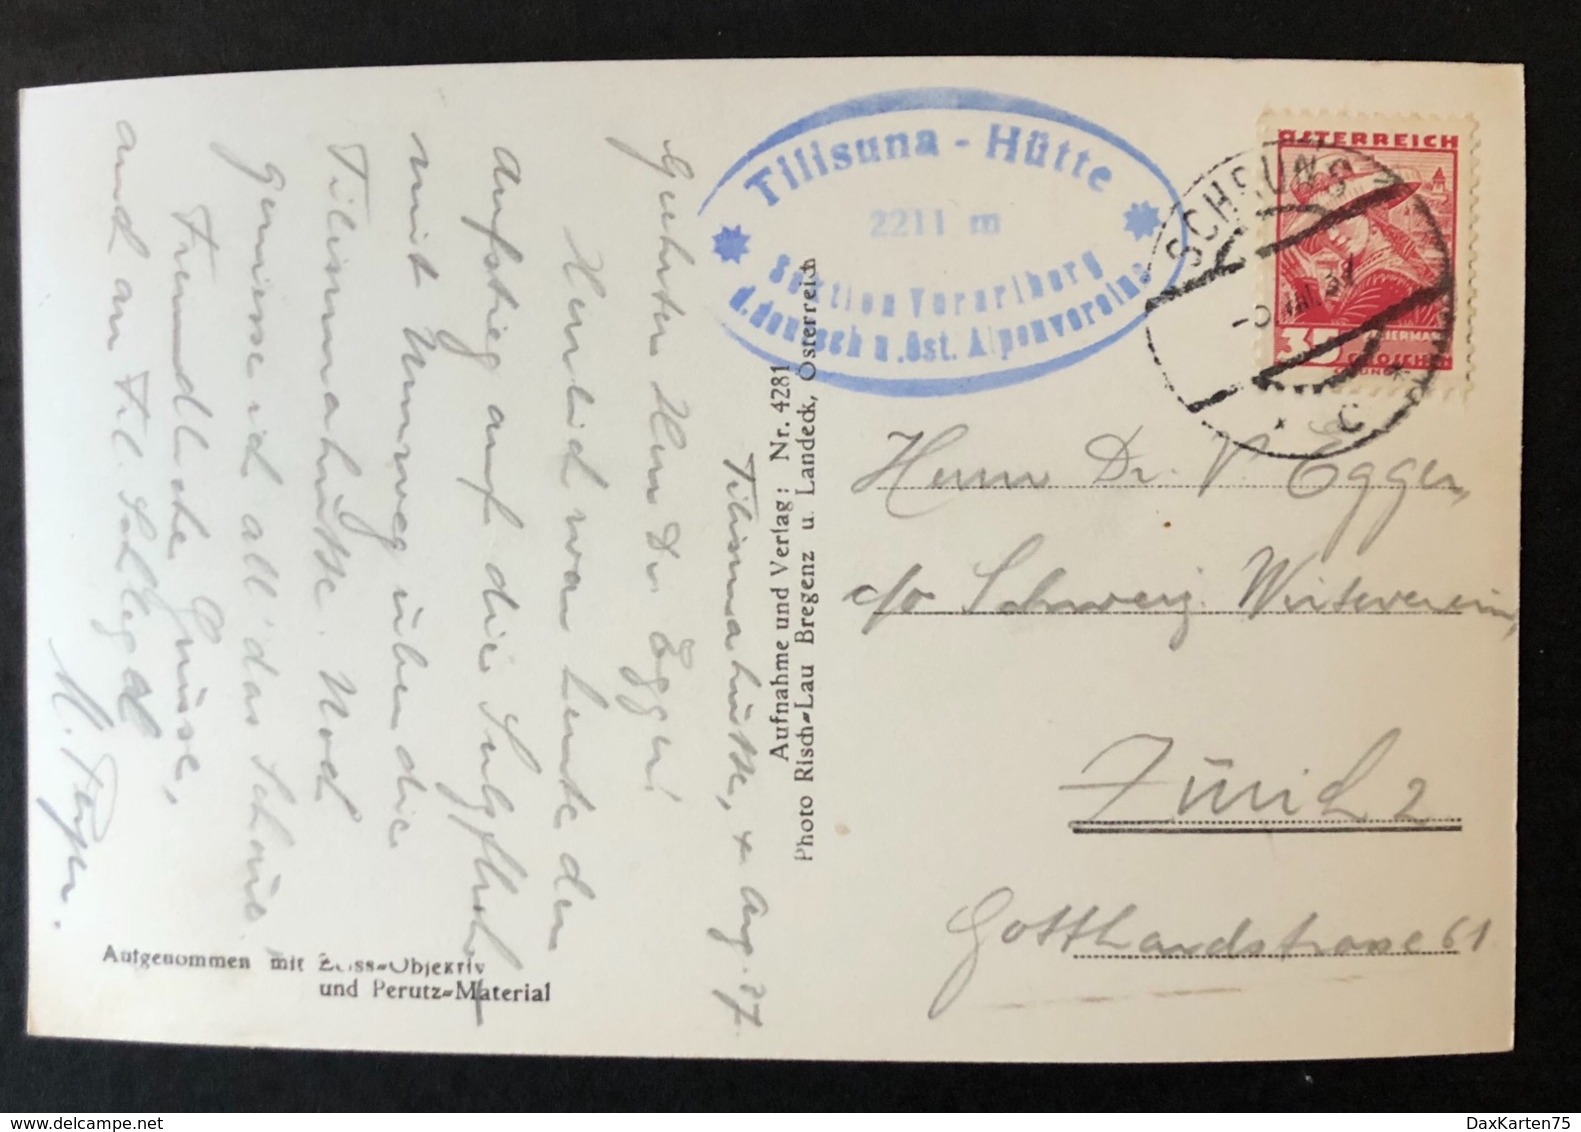 Tilisunahütte, 4 Aug. 37
Geehrter Herr Dr. Egger!
Herrlich war heute der
Aufstieg auf die Sulzfluh
mit Umweg über die
Tilisunahütte. Noch
geniesse ich all' das Schöne.
Freundliche Grüsse,
auch an Frl. Schlegel
Tilisuna - Hütte
2211 m
Sektion Vorarlberg
d. deutsch u. öst. Alpenvereins
Aufnahme und Verlag: Nr. 4281
Photo Risch-Lau Bregenz u. Landeck, Österreich
Aufgenommen mit Zeiss-Objektiv
und Perutz-Material
ÖSTERREICH
35
GROSCHEN
SCHRUNS
VIII 37
* C *
Herrn Dr. V. Egger,
c/o Schweiz Wirteverein,
Zürich 2
Gotthardstrasse 61
DaxKarten75